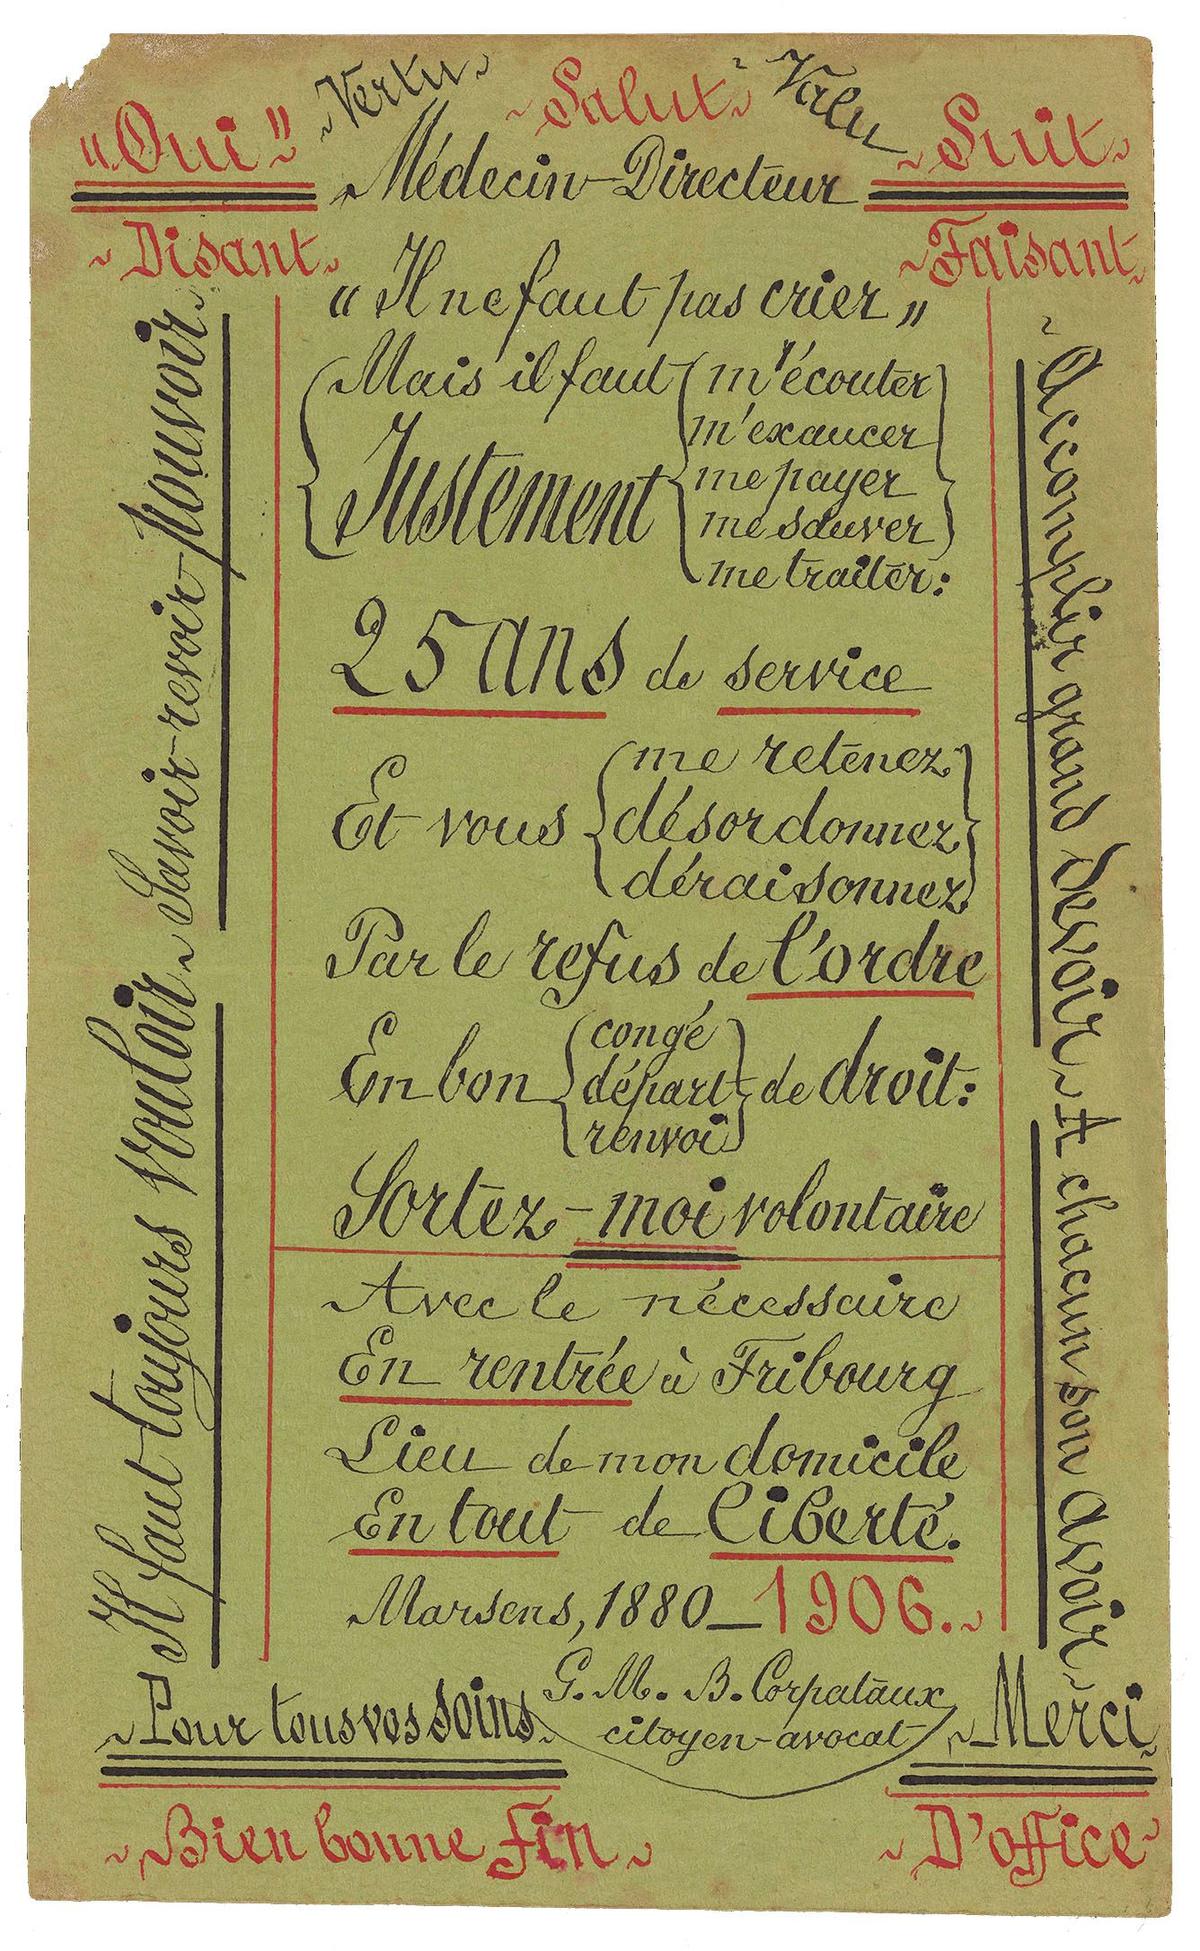 ~ Vertu ~ ~ Salut ~ ~ Valu
"Oui" ~ Suit ~
Médecin-Directeur
~ Disant ~ ~ Faisant ~
"Il ne faut pas crier"
Mais il faut m'écouter
m'exaucer
Justement me payer
me sauver
me traiter:
25 ans de service
me retenez
Et vous désordonnez
déraisonnez
Par le refus de l'ordre
congé
En bon départ de droit:
renvoi
Sortez-moi volontaire
Avec le nécessaire
En rentrée à Fribourg
Lieu de mon domicile
En tout de liberté.
Marsens, 1880_1906.~
G. M. B. Corpataux
citoyen-avocat
Il faut toujours vouloir ~ Savoir-revoir-pouvoir ~
~ Accomplir grand devoir ~ A chacun son avoir ~
~ Pour tous vos soins ~ ~ Merci ~
~ Bien bonne fin ~ ~ D'office ~